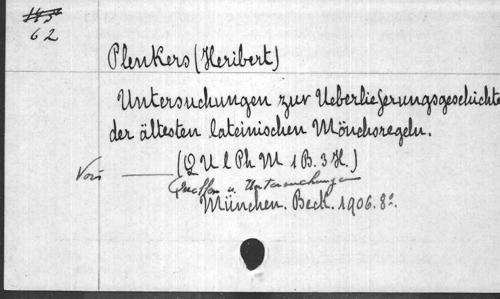 62
Plenkers (Heribert)
Untersuchungen zur Ueberlieferungsgeschichte
der ältesten lateinischen Mönchsregeln.
(Q U l Ph M 1 B. 3 H.)
Quellen u. Untersuchungen
München. Beck. 1906. 8°.